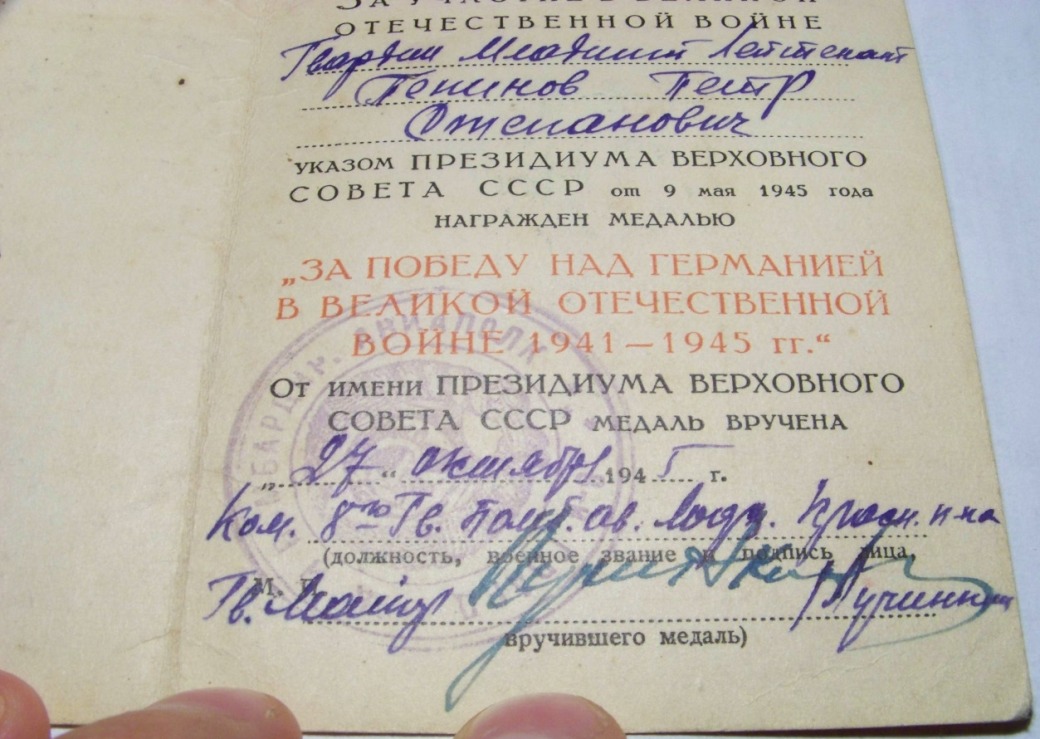 ЗА УЧАСТИЕ В ВЕЛИКОЙ
ОТЕЧЕСТВЕННОЙ ВОЙНЕ
Гвардии Младший Лейтенант
Пенинов Петр
УКАЗОМ ПРЕЗИДИУМА ВЕРХОВНОГО
СОВЕТА СССР от 9 мая 1945 года
НАГРАЖДЕН МЕДАЛЬЮ
„ЗА ПОБЕДУ НАД ГЕРМАНИЕЙ
В ВЕЛИКОЙ ОТЕЧЕСТВЕННОЙ
ВОЙНЕ 1941 — 1945 гг.“
ОТ ИМЕНИ ПРЕЗИДИУМА ВЕРХОВНОГО
СОВЕТА СССР МЕДАЛЬ ВРУЧЕНА
„27“ октября 1945 г.
Ком. 8го Гв. ав. Красн.
(должность, военное звание и подпись лица,
М. П.
Гв. Майор
вручившего медаль)
БОМБАРДИР. АВИАПОЛК